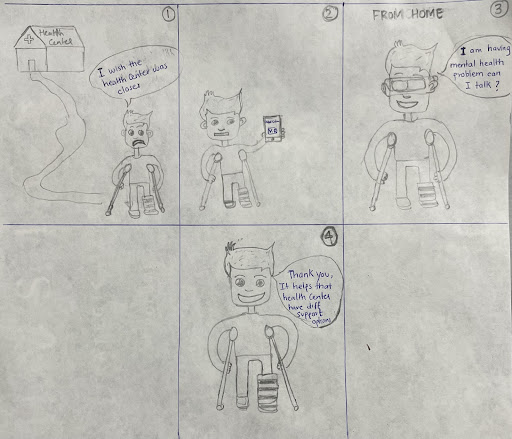 1
Health
Center
I wish the
health Center was
closer
2
3
FROM HOME
I am having
mental health
problem can
I talk?
4
Thank you,
It helps that
health Center
have diff
support
options